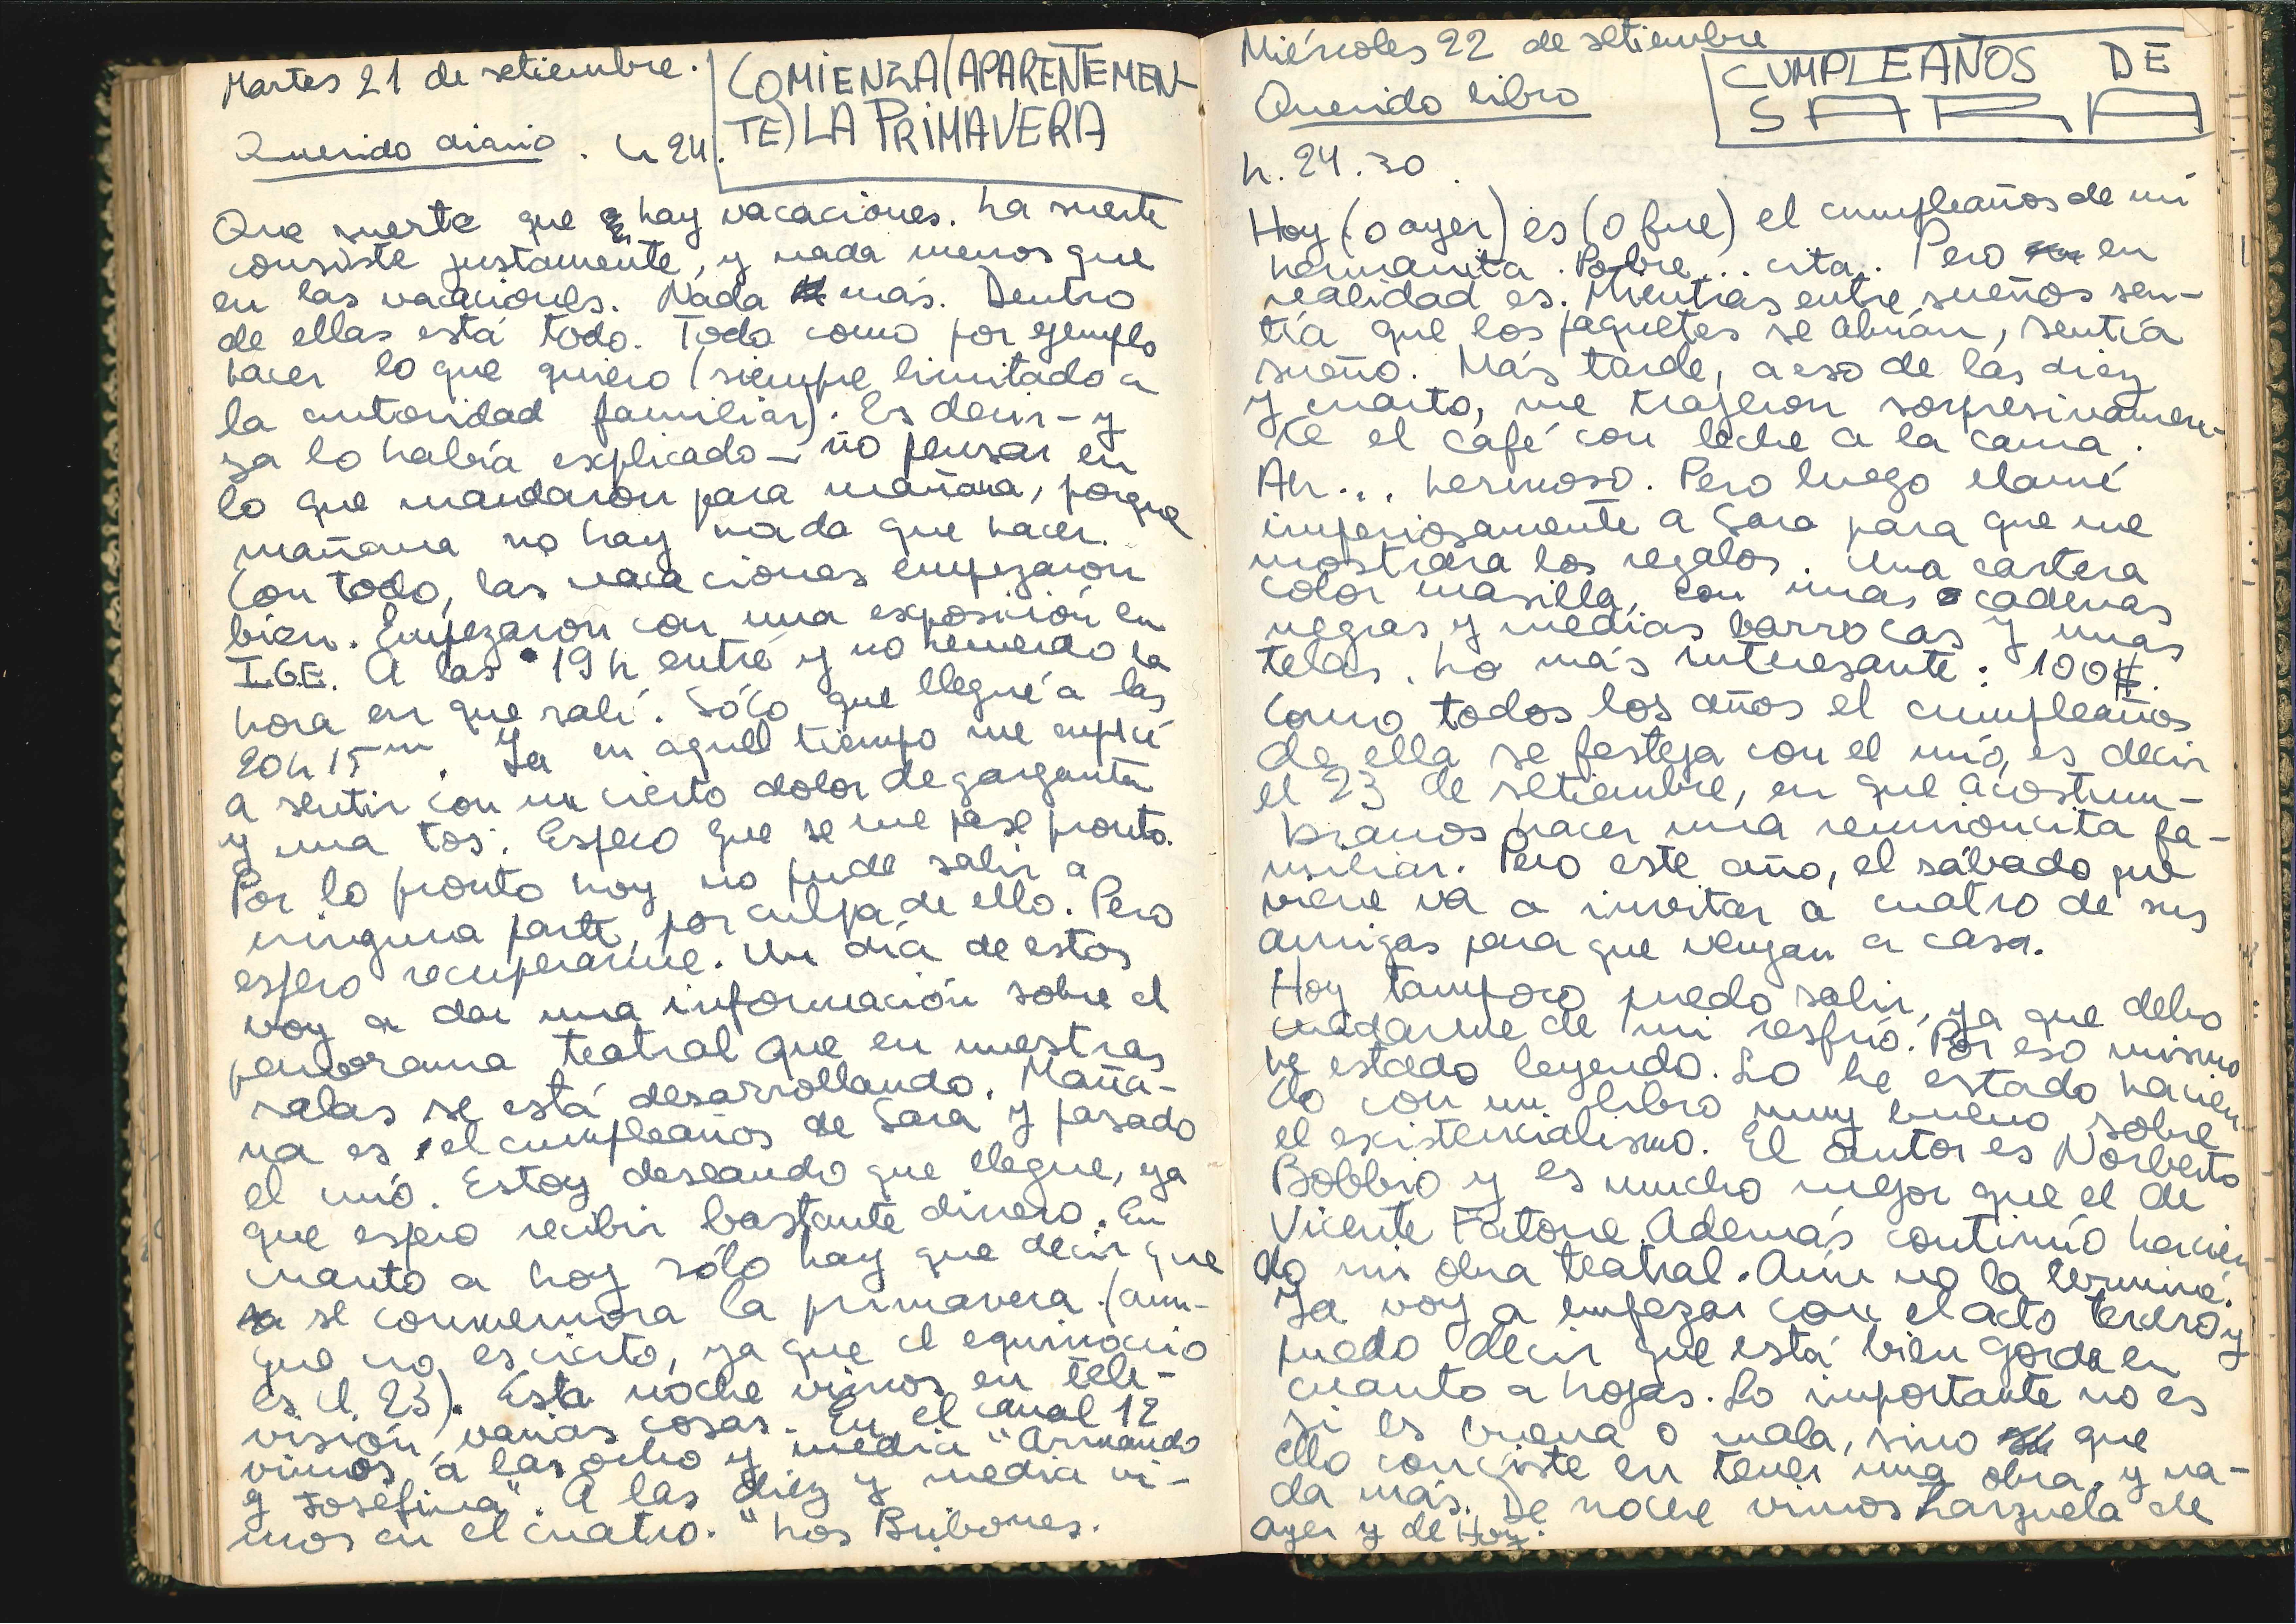 Martes 21 de setiembre.
COMIENZA (APARENTEMEN-
TE) LA PRIMAVERA
Querido diario. h 24.
Que suerte que hay vacaciones. La suerte
consiste justamente, y nada menos que
en las vacaciones. Nada más. Dentro
de ellas está todo. Todo como por ejemplo
hacer lo que quiero (siempre limitado a
la autoridad familiar). Es decir - y
ya lo había explicado - no pensar en
lo que mandaron para mañana, porque
mañana no hay nada que hacer.
Con todo, las vacaciones empezaron
bien. Empezaron con una exposición en
I.G.E. A las 19h entré y no recuerdo la
hora en que salí. Sólo que llegué a las
20h 15m. Ya en aquel tiempo me empecé
a sentir con un cierto dolor de garganta
y una tos. Espero que se me pase pronto.
Por lo pronto hoy no pude salir a
ninguna parte, por culpa de ello. Pero
espero recuperarme. Un día de estos
voy a dar una información sobre el
panorama teatral que en nuestras
salas se está desarrollando. Maña-
na es el cumpleaños de Sara y pasado
el mío. Estoy deseando que llegue, ya
que espero recibir bastante dinero. En
cuanto a hoy sólo hay que decir que
se conmemora la primavera (aun-
que no es cierto, ya que el equinoccio
es el 23). Esta noche vimos en tele-
visión varias cosas. En el canal 12
vimos a las ocho y media "Armando
y Josefina". A las diez y media vi-
mos en el cuatro. "Los Bribones.
Miércoles 22 de setiembre
CUMPLEAÑOS DE
SARA
Querido libro
h. 24.30.
Hoy (o ayer) es (o fue) el cumpleaños de mi
hermanita. Pobre... cita. Pero en
realidad es. Mientras entre sueños sen-
tía que los paquetes se abrían, sentía
sueño. Más tarde, a eso de las diez
y cuarto, me trajeron sorpresivamen-
te el café con leche a la cama.
Ah... hermoso. Pero luego llamé
imperiosamente a Sara para que me
mostrara los regalos. Una cartera
color masilla, con unas cadenas
negras y medias barrocas y unas
telas. Lo más interesante: 100$.
Como todos los años el cumpleaños
de ella se festeja con el mío, es decir
el 23 de setiembre, en que acostum-
bramos hacer una reunioncita fa-
miliar. Pero este año, el sábado que
viene va a invitar a cuatro de sus
amigas para que vengan a casa.
Hoy tampoco puedo salir, ya que debo
cuidarme de mi resfrío. Por eso mismo
he estado leyendo. Lo he estado hacien-
do con un libro muy bueno sobre
el existencialismo. El autor es Norberto
Bobbio y es mucho mejor que el de
Vicente Fatone. Además continúo hacien
do mi obra teatral. Aún no la terminé.
Ya voy a empezar con el acto tercero y
puedo decir que está bien gorda en
cuanto a hojas. Lo importante no es
si es buena o mala, sino que
ello consiste en tener una obra, y na-
da más. De noche vimos Zarzuela de
ayer y de Hoy.